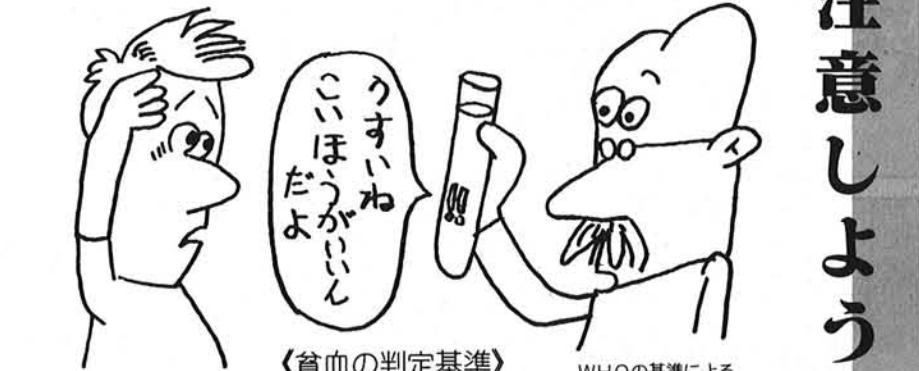 注意しよう
うすいね
こいほうがいいん
だよ
《貧血の判定基準》
WHOの基準による